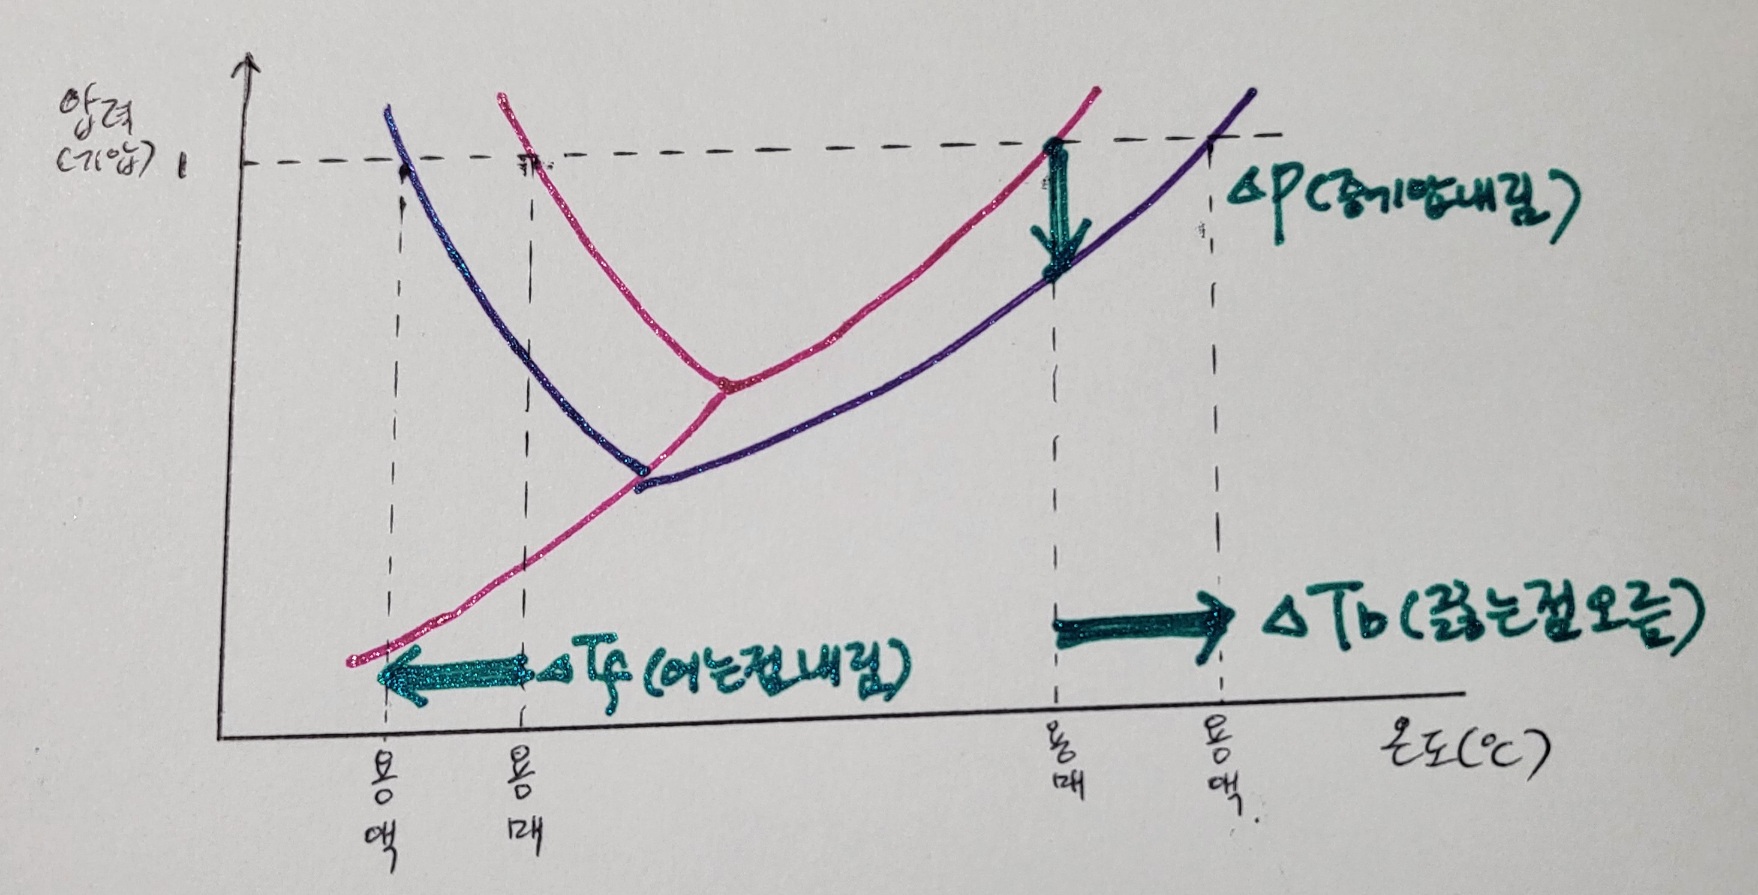 압력
(기압) 1
ΔP(증기압내림)
ΔTb(끓는점오름)
ΔTf(어는점내림)
온도(℃)
용액
용매
용매
용액